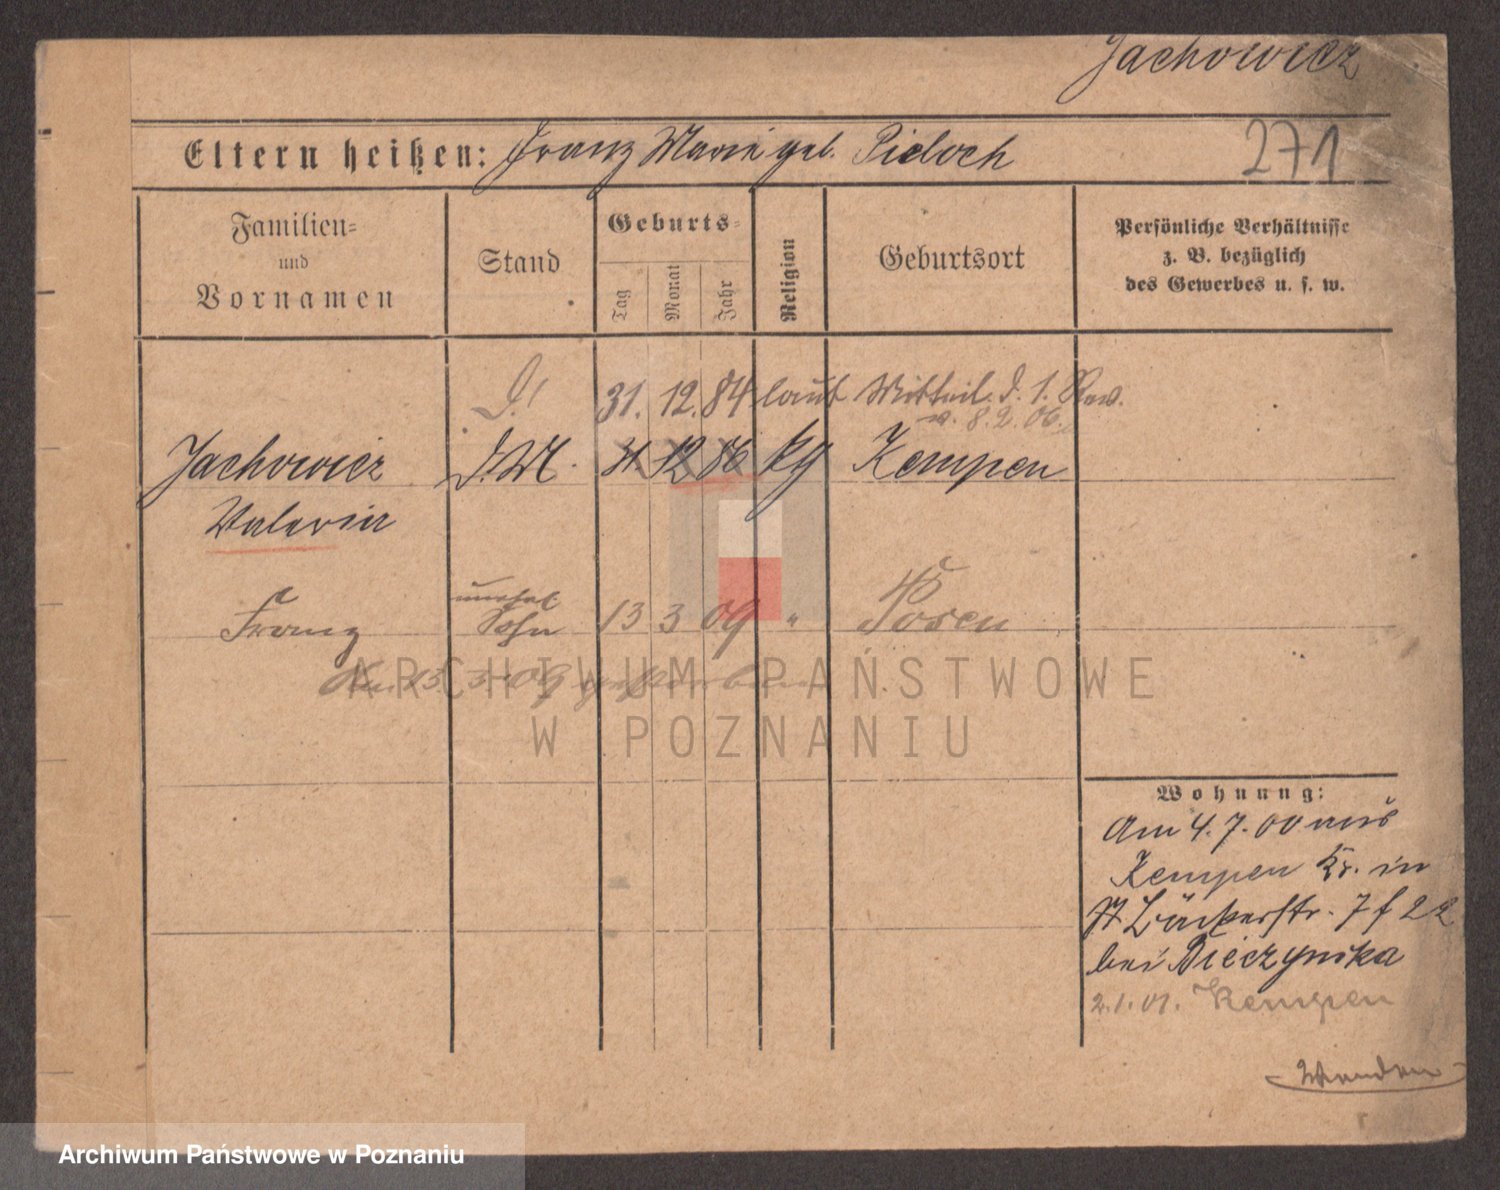 Jachowicz
Eltern heißen: Franz Marie geb. Pieloch
271
Familien=
und
Vornamen
Stand
Geburts=
Tag
Monat
Jahr
Religion
Geburtsort
Persönliche Verhältnisse
z. B. bezüglich
des Gewerbes u. s. w.
D! 31. 12. 84 laut Mitteil. d. 1. Rev.
v. 8. 2. 06.
Jachowicz D.M. 31 12 86 kg Kempen
Valeria
Franz unehel Sohn 13 3 09 " Posen
Am 13. 3. 09 gestorben
ARCHIWUM PAŃSTWOWE
W POZNANIU
Wohnung:
Am 4. 7. 00 aus
Kempen Kr. in
Bäckerstr. 7 f 22
bei Bieczynska
2. 1. 01. Kempen
Wenden
Archiwum Państwowe w Poznaniu